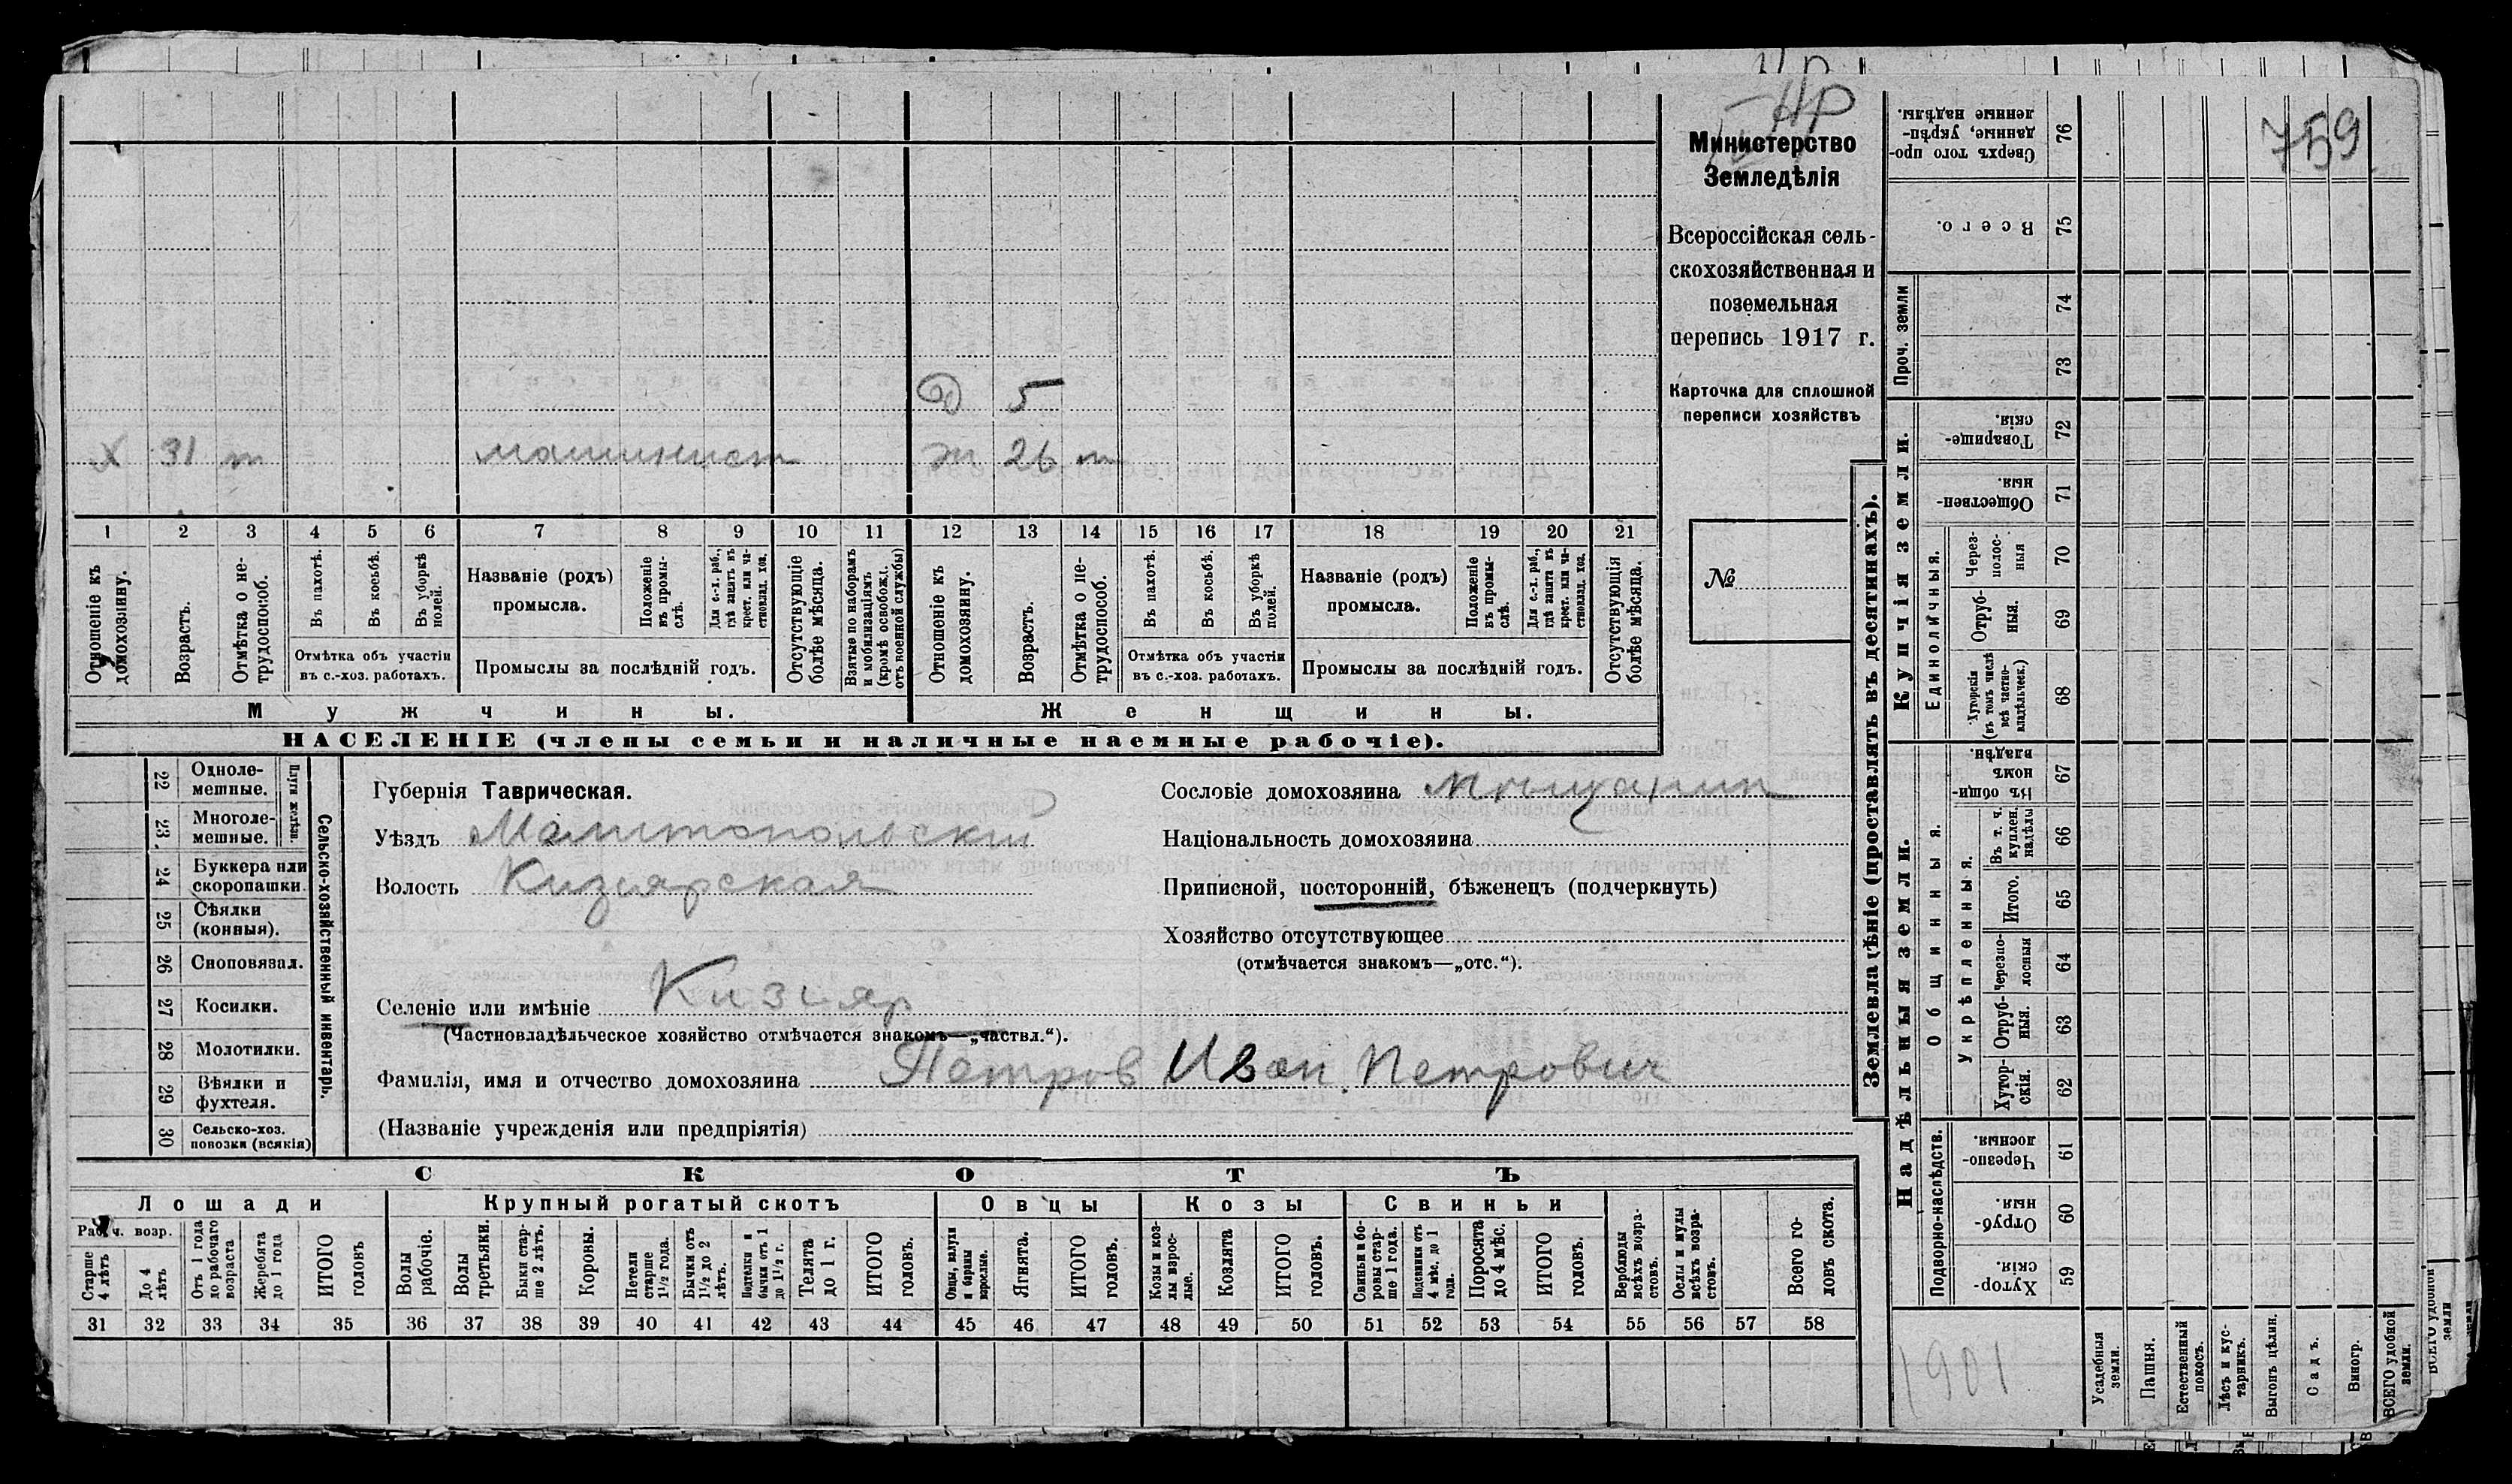 НР
759
Министерство
Земледѣлія
Всероссійская сель-
скохозяйственная и
поземельная
перепись 1917 г.
Карточка для сплошной
переписи хозяйствъ
№
Д 5
Х 31 т машинист ж 26 т
1 2 3 4 5 6 7 8 9 10 11 12 13 14 15 16 17 18 19 20 21
Отношеніе къ домохозяину.
Возрастъ.
Отмѣтка о не-трудоспособ.
Въ пахотѣ.
Въ косьбѣ.
Въ уборкѣ полей.
Отмѣтка объ участіи въ с.-хоз. работахъ.
Названіе (родъ) промысла.
Положеніе въ промы-слѣ.
Для с.-х. раб., гдѣ занятъ въ крест. или ча-стновлад. хоз.
Промыслы за послѣдній годъ.
Отсутствующіе болѣе мѣсяца.
Взятые по наборамъ и мобилизаціямъ (кромѣ освобожд. отъ военной службы)
Отношеніе къ домохозяину.
Возрастъ.
Отмѣтка о не-трудоспособ.
Въ пахотѣ.
Въ косьбѣ.
Въ уборкѣ полей.
Отмѣтка объ участіи въ с.-хоз. работахъ.
Названіе (родъ) промысла.
Положеніе въ промы-слѣ.
Для с.-х. раб., гдѣ занята въ крест. или ча-стновлад. хоз.
Промыслы за послѣдній годъ.
Отсутствующія болѣе мѣсяца.
Мужчины. Женщины.
НАСЕЛЕНІЕ (члены семьи и наличные наемные рабочіе).
Сельско-хозяйственный инвентарь.
Плуги желѣзн.
22 Одноле-мешные.
23 Многоле-мешные.
24 Буккера или скоропашки
25 Сѣялки (конныя).
26 Сноповязал.
27 Косилки.
28 Молотилки.
29 Вѣялки и фухтеля.
30 Сельско-хоз. повозки (всякія)
Губернія Таврическая.
Уѣздъ Мелитопольский
Волость Кизиярская
Сословіе домохозяина Мѣщанин
Національность домохозяина
Приписной, посторонній, бѣженецъ (подчеркнуть)
Хозяйство отсутствующее
(отмѣчается знакомъ—„отс.“).
Селеніе или имѣніе Кизияр
(Частновладѣльческое хозяйство отмѣчается знакомъ—„частвл.“).
Фамилія, имя и отчество домохозяина Петров Иван Петрович
(Названіе учрежденія или предпріятія)
СКОТЪ
Лошади Крупный рогатый скотъ Овцы Козы Свиньи
Рабоч. возр.
Старше 4 лѣтъ
До 4 лѣтъ
Отъ 1 года до рабочаго возраста
Жеребята до 1 года
ИТОГО головъ
Волы рабочіе.
Волы третьяки.
Быки стар-ше 2 лѣтъ.
Коровы.
Нетели старше 1½ года.
Бычки отъ 1½ до 2 лѣтъ.
Подтелки и бычки отъ 1 до 1½ г.
Телята до 1 г.
ИТОГО головъ.
Овцы, валухи и бараны взрослые.
Ягнята.
ИТОГО головъ.
Козы и коз-лы взрос-лые.
Козлята
ИТОГО головъ.
Свиньи и бо-ровы стар-ше 1 года.
Подсвинки отъ 4 мѣс. до 1 года.
Поросята до 4 мѣс.
ИТОГО головъ.
Верблюды всѣхъ возра-стовъ.
Ослы и мулы всѣхъ возра-стовъ.
Всего го-ловъ скота.
31 32 33 34 35 36 37 38 39 40 41 42 43 44 45 46 47 48 49 50 51 52 53 54 55 56 57 58
Землевладѣніе (проставлять въ десятинахъ).
Купчія земли.
Надѣльныя земли.
76 Сверхъ того про-данные, укрѣп-ленные надѣлы.
75 Всего.
Проч. земли
74
73
72 Товарище-скія.
71 Обществен-ныя
Единоличныя.
70 Через-полос-ныя
69 Отруб-ныя.
68 Хуторскія (въ томъ числѣ всѣ частно-владѣльческ.)
Общинныя.
67 Въ общин-номъ владѣн.
Укрѣпленныя.
66 Въ т. ч. куплен. надѣлы
65 Итого.
64 Черезпо-лосныя
63 Отруб-ныя.
62 Хутор-скія.
Подворно-наслѣдств.
61 Черезпо-лосныя.
60 Отруб-ныя.
59 Хутор-скія.
1901
Усадебныя земли.
Пашня.
Естественный покосъ.
Лѣсъ и кус-тарникъ.
Выгонъ цѣлин.
Садъ.
Виногр.
ВСЕГО удобной земли.